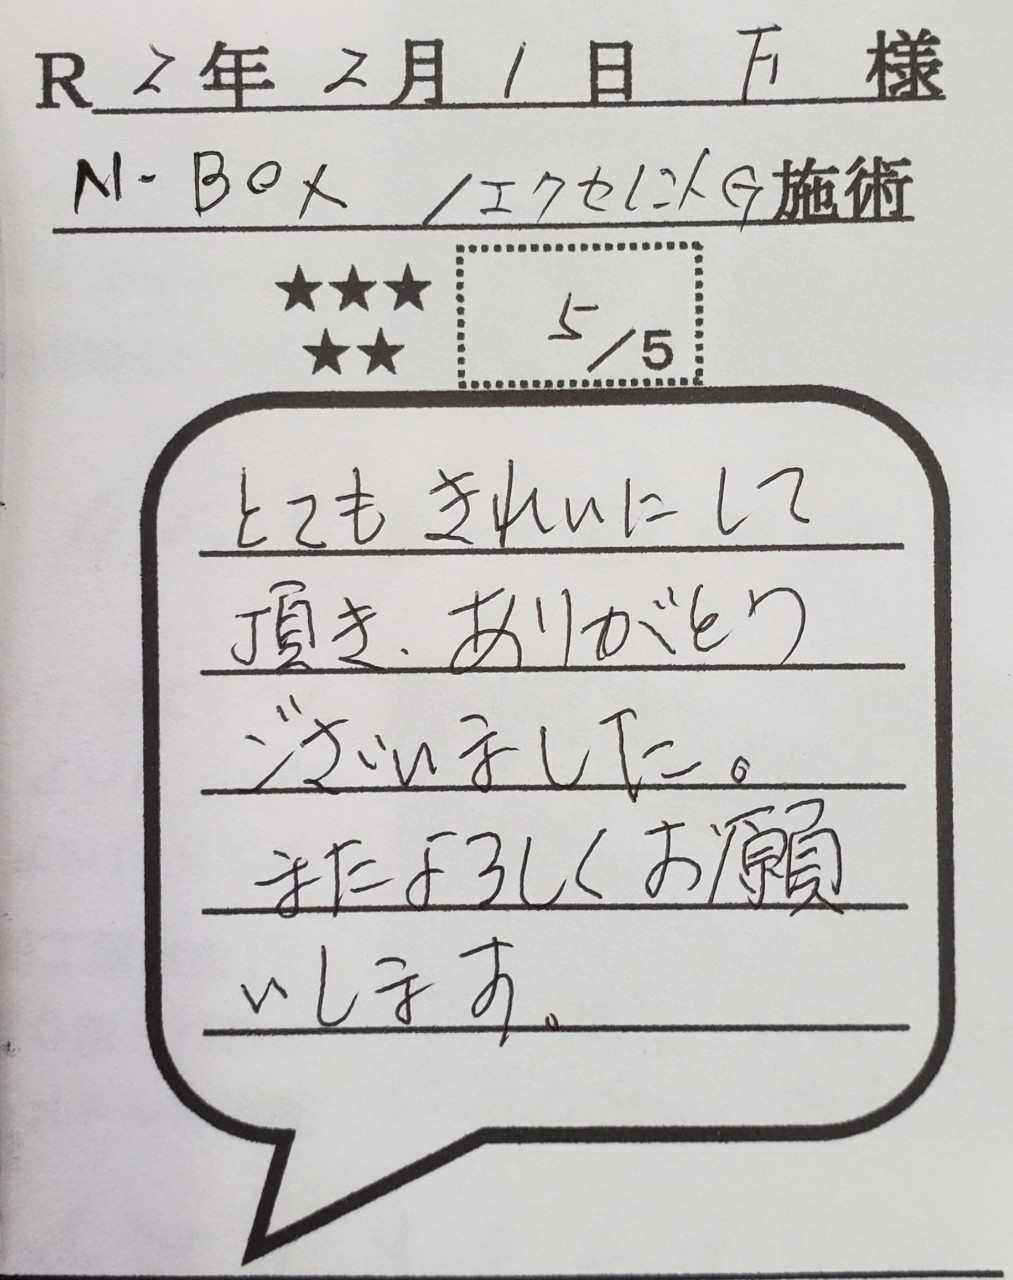 R2年2月1日 下 様
N-BOX /エクセレントG施術
★★★
★★
5/5
とてもきれいにして
頂き、ありがとう
ございました。
またよろしくお願
いします。